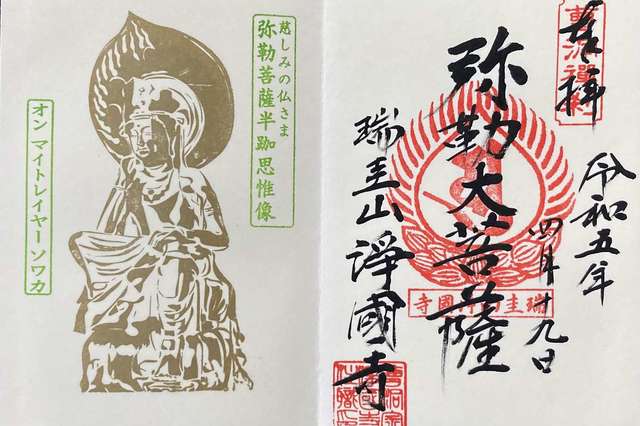 慈しみの仏さま
弥勒菩薩半跏思惟像
オン マイトレイヤー ソワカ
奉拝
令和五年
四月十九日
弥勒大菩薩
瑞圭山淨國寺